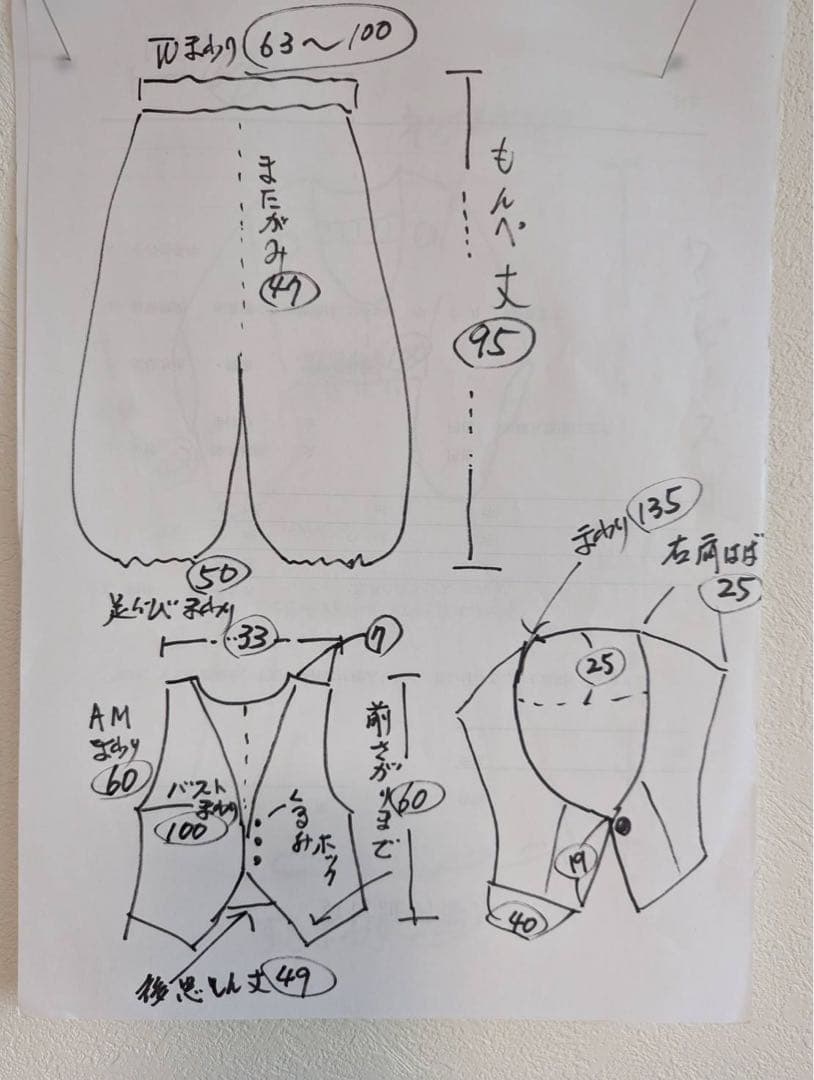 Wまわり 63〜100
またがみ
47
もんぺ丈
95
50
足くびまわり
33
7
AM
まわり
60
バスト
まわり
100
くるみホック
前さがりまで
60
49
まわり 135
右肩はば
25
25
19
40